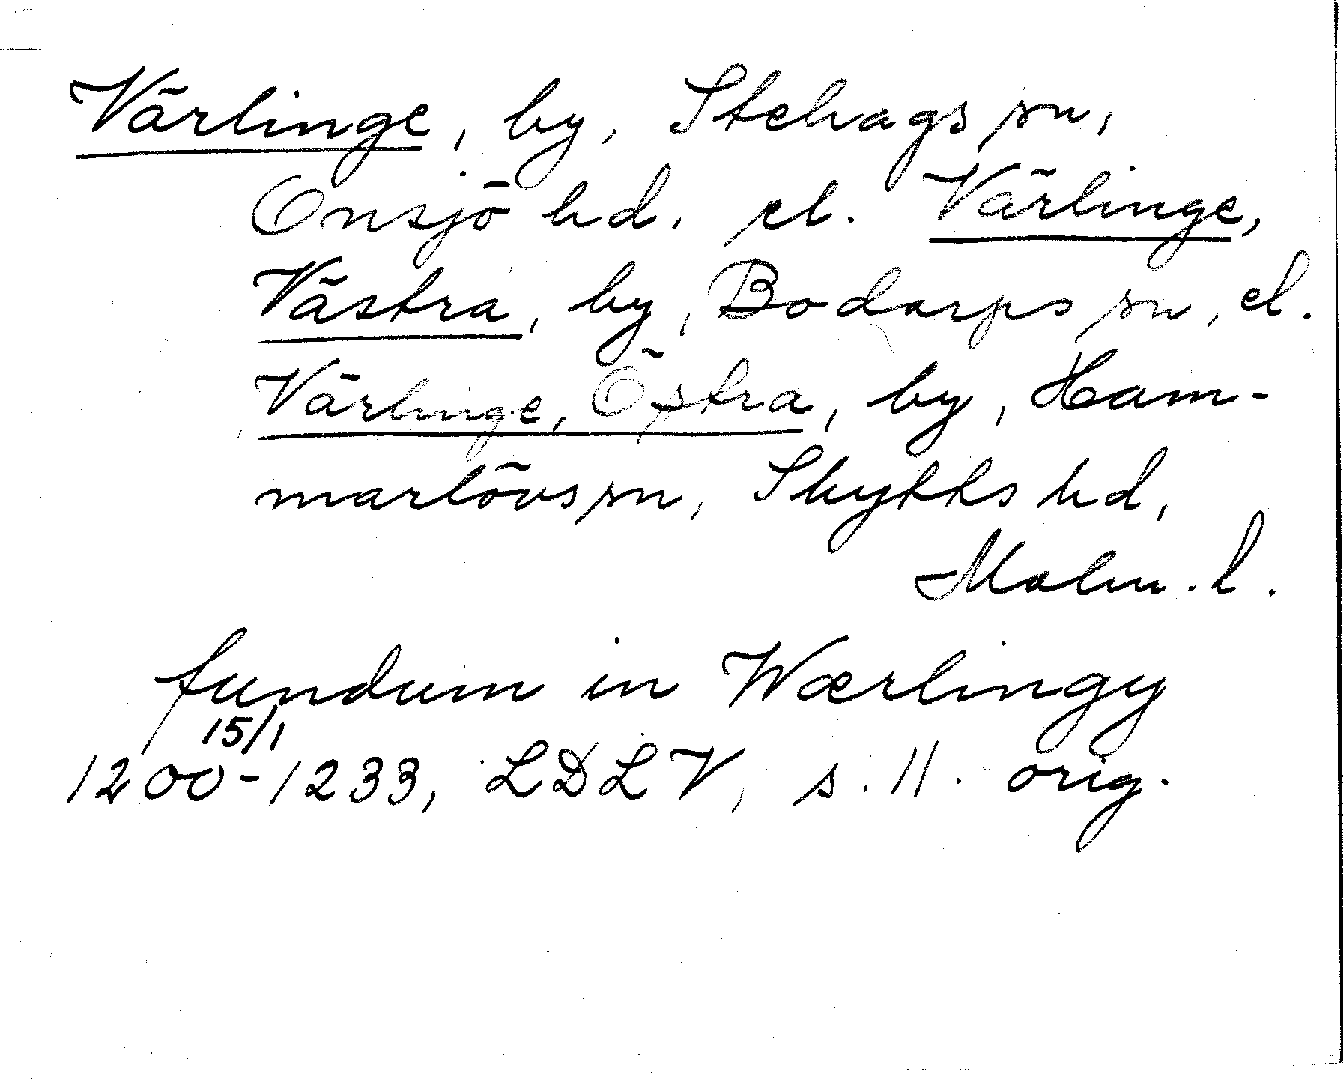 Värlinge, by, Stehags sn,
Onsjö hd. el. Värlinge,
Västra, by, Bodarps sn, el.
Värlinge, Östra, by, Ham-
marlövs sn, Skytts hd,
Malm. l.
fundum in Wærlingy
15/1
1200-1233, LDLV, s. 11. orig.